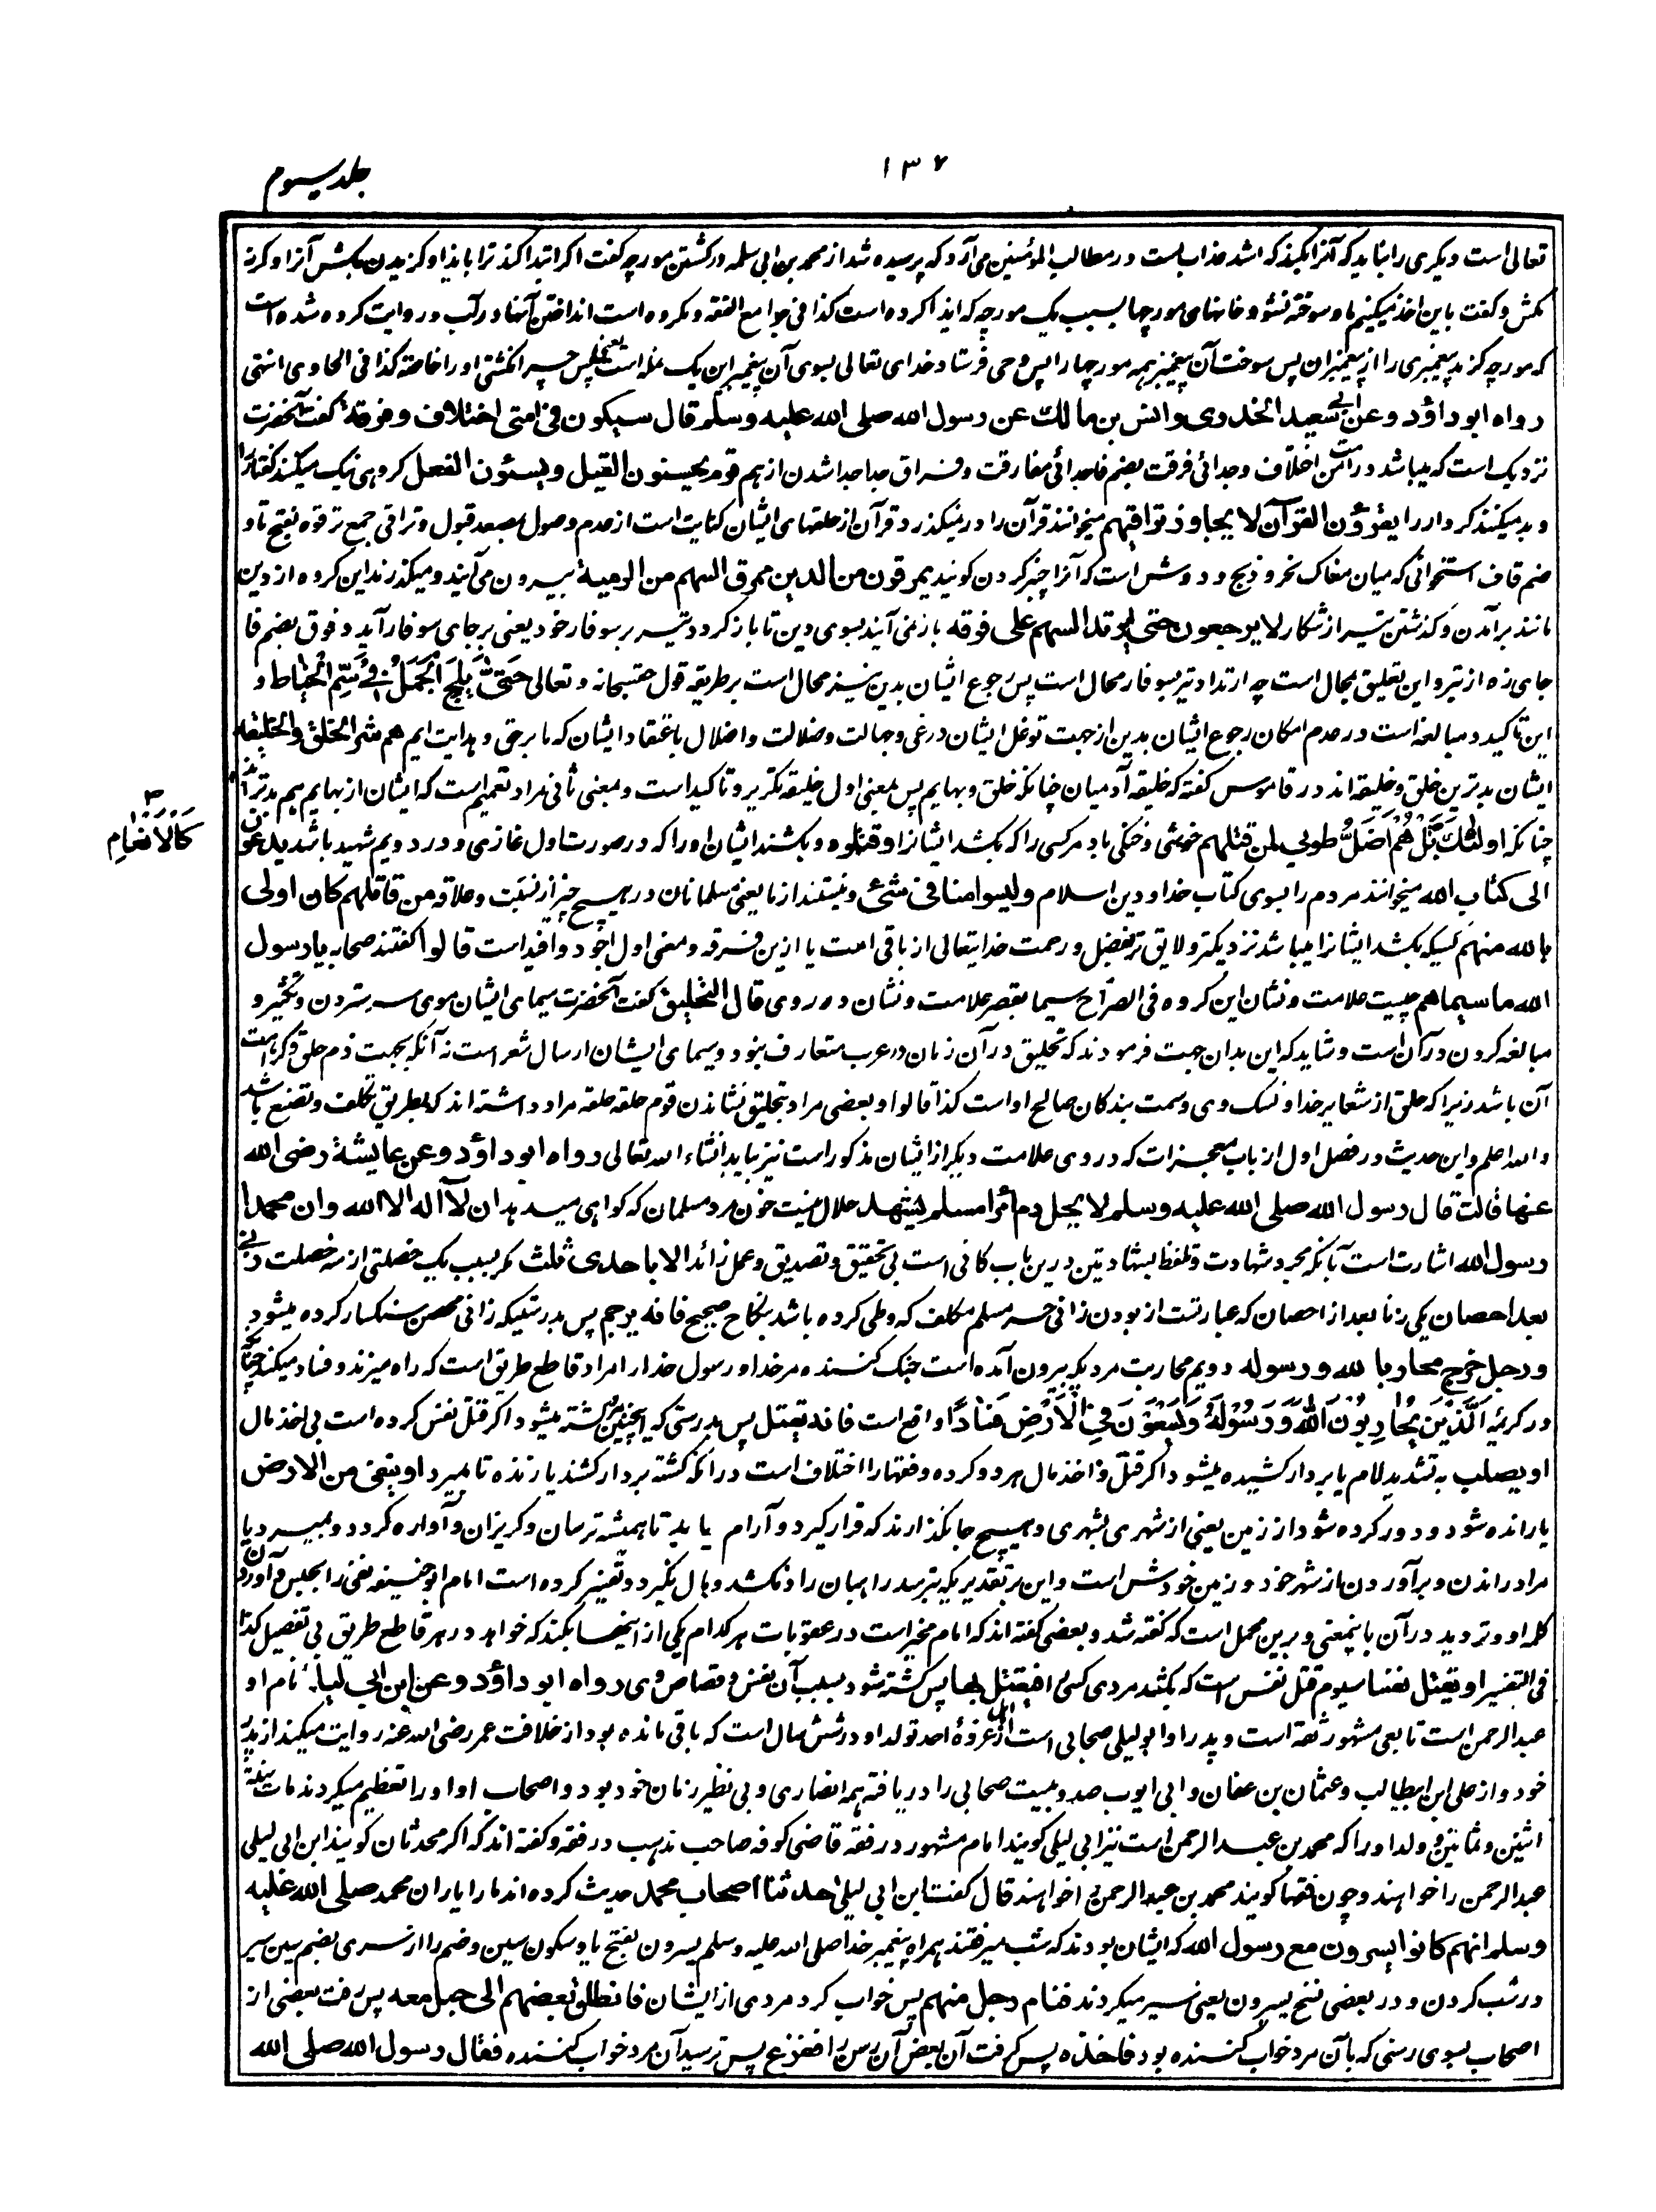 ۱۳۷
جلد سیوم
تعالی است دیگری را نباید که آنرا بکند که اشد عذاب است و در مطالب المؤمنین می‌آرد که پرسیده شد از محمد بن ابی سلمه در کشتن مورچه گفت اگر ابتدا کند ترا بایذا و گزیدن بکش آنرا و گرنه
مکش و گفت باین اخذ میکنیم ما و سوخته نشود خانهای مورچها بسبب یک مورچه که ایذا کرده است کذا فی جوامع الفقه و مکروه است انداختن آنها در آب و روایت کرده شده است
که مورچه گزید پیغمبری را از پیغمبران پس سوخت آن پیغمبر همه مورچها را پس وحی فرستاد خدای تعالی بسوی آن پیغمبر این یک نمله است یعنی پس چرا نکشتی او را خاصة کذا فی الحاوی انتهی
رواه ابو داؤد وعن ابی سعید الخدری وانس بن مالك عن رسول الله صلی الله علیه وسلم قال سیکون فی امتی اختلاف وفرقة گفت آنحضرت
نزدیک است که میباشد در امت من اختلاف و جدائی فرقت بضم فا جدائی مفارقت و فراق جدا جدا شدن از هم قوم یحسنون القیل ویسئون الفعل گروهی نیک میکنند گفتار را
و بد میکنند کردار را یقرؤن القرآن لا یجاوز تراقیهم میخوانند قرآن را در نمیگذرد قرآن از حلقهای ایشان کنایت است از عدم وصول بمصعد قبول و تراقی جمع ترقوه بفتح تا و
ضم قاف استخوانی که میان مغاک نحر و ذبح و دوش است که آنرا چنبر گردن گویند یمرقون من الدین مروق السهم من الرمیة بیرون می‌آیند و میگذرند این گروه از دین
مانند برآمدن و گذشتن تیر از شکار لا یرجعون حتی یرتد السهم علی فوقه باز نمی آیند بسوی دین تا باز گردد تیر بر سوفار خود یعنی بر جای سوفار آید و فوق بضم فا
جای زه از تیر و این تعلیق بمحال است چه ارتداد تیر بسوفار محال است پس رجوع ایشان بدین نیز محال است بر طریقه قول حق سبحانه و تعالی حَتّٰی یَلِجَ الْجَمَلُ فِیْ سَمِّ الْخِیَاطِ و
این تاکید و مبالغه است در عدم امکان رجوع ایشان بدین از جهت توغل ایشان در غی و جهالت و ضلالت و اضلال باعتقاد ایشان که ما بر حق و هدایت ایم هم شر الخلق والخلیقة
ایشان بدترین خلق و خلیقه اند در قاموس گفته که خلیقه آدمیان چنانکه خلق و بهایم پس بمعنی اول خلیقه تکریر و تاکید است و بمعنی ثانی مراد تعمیم است که ایشان از بهایم هم بدتر اند
چنانکه اولئك کَالاَنْعَامِ بَلْ هُمْ اَضَلُّ طوبی لمن قتلهم خوشی و خنکی باد مر کسی را که بکشد ایشانرا وقتلوه و بکشند ایشان او را که در صورت اول غازی و در دویم شهید باشد یدعون
الی کتاب الله میخوانند مردم را بسوی کتاب خدا و دین اسلام ولیسوا منا فی شئ و نیستند از ما یعنی مسلمانان در هیچ چیز از نسبت و علاقه من قاتلهم کان اولی
بالله منهم کسیکه بکشد ایشانرا میباشد نزدیکتر و لایق تر بفضل و رحمت خدایتعالی از باقی امت یا ازین فرقه و معنی اول اجود و افید است قالوا گفتند صحابه یا رسول
الله ما سیماهم چیست علامت و نشان این گروه فی الصراح سیما بقصر علامت و نشان ده روی قال التحلیق گفت آنحضرت سیمای ایشان موی سر ستردن و تکثیر و
مبالغه کردن در آن است و شاید که این بدان جهت فرمودند که تحلیق در آن زمان در عرب متعارف نبود و سیمای ایشان ارسال شعر است نه آنکه بجهت ذم حلق و کراهت
آن باشد زیرا که حلق از شعایر خدا و نسک وی و سمت بندگان صالح او است کذا قالوا و بعضی مراد بتحلیق نشاندن قوم حلقه حلقه مراد داشته اند که بطریق تکلف و تصنع باشد
والله اعلم و این حدیث در فصل اول از باب معجزات که در وی علامت دیگر از ایشان مذکور است نیز بیاید انشاء الله تعالی رواه ابو داؤد وعن عایشة رضی الله
عنها قالت قال رسول الله صلی الله علیه وسلم لا یحل دم امرأ مسلم یشهد حلال نیست خون مرد مسلمان که گواهی میدهد ان لآ اله الا الله وان محمدا
رسول الله اشارت است بآنکه مجرد شهادت و تلفظ بشهادتین درین باب کافی است بی تحقیق و تصدیق و عمل زائد الا باحدی ثلث مگر بسبب یک خصلتی از سه خصلت زنی
بعد احصان یکی زنا بعد از احصان که عبارتست از بودن زانی حر مسلم مکلف که وطی کرده باشد بنکاح صحیح فانه یرجم پس بدرستیکه زانی محصن سنگسار کرده میشود
ورجل خرج محاربا لله ورسوله دویم محاربت مردیکه بیرون آمده است جنگ کننده مر خدا و رسول خدا را مراد قاطع طریق است که راه میزند و فساد میکند چنانچه
در کریمهٔ اَلَّذِیْنَ یُحَارِبُوْنَ اللّٰهَ وَرَسُوْلَهٗ وَیَسْعَوْنَ فِی الْاَرْضِ فَسَادًا واقع است فانه یقتل پس بدرستی که اینچنین مرد کشته میشود اگر قتل نفس کرده است بی اخذ مال
او یصلب به تشدید لام یا بردار کشیده میشود اگر قتل و اخذ مال هر دو کرده و فقها را اختلاف است در آنکه کشته بردار کشند یا زنده تا بمیرد او ینفی من الارض
یا رانده شود و دور کرده شود از زمین یعنی از شهری بشهری و هیچ جا نگذارند که قرار گیرد و آرام یابد تا همیشه ترسان و گریزان و آواره گردد و بمیرد یا
مراد راندن و برآوردن از شهر خود و زمین خودش است و این بر تقدیریکه بترسد راهیان را و نکشد و مال نگیرد و تفسیر کرده است امام ابو حنیفه نفی را بحبس و آوردن
کلمه او و تردید در آن باینمعنی و برین محمل است که گفته شد و بعضی گفته اند که امام مخیر است در عقوبات هر کدام یکی از اینها بکند که خواهد در هر قاطع طریق بی تفصیل کذا
فی التفسیر او یقتل نفسا سیوم قتل نفس است که بکشد مردی کسی را فیقتل بها پس کشته شود بسبب آن نفس و قصاص وی رواه ابو داؤد وعن ابن ابی لیلی نام او
عبد الرحمن است تابعی مشهور ثقه است و پدر او ابو لیلی صحابی است از اهل غزوهٔ احد تولد او در شش سال است که باقی مانده بود از خلافت عمر رضی الله عنه روایت میکند از پدر
خود و از علی ابن ابیطالب و عثمان بن عفان و ابی ایوب صد و بیست صحابی را دریافته همه انصاری و بی نظیر زمان خود بود و اصحاب او او را تعظیم میکردند مات سنة
اثنین و ثمانین و ولد او را که محمد بن عبد الرحمن است نیز ابی لیلی گویند امام مشهور در فقه قاضی کوفه صاحب مذهب در فقه و گفته اند که اگر محدثان گویند ابن ابی لیلی
عبد الرحمن را خواهند و چون فقها گویند محمد بن عبد الرحمن را خواهند قال گفت ابن ابی لیلی حدثنا اصحاب محمد حدیث کرده اند ما را یاران محمد صلی الله علیه
وسلم انهم کانوا یسرون مع رسول الله که ایشان بودند که شب میرفتند همراه پیغمبر خدا صلی الله علیه وسلم یسرون بفتح یا و سکون سین و ضم را از سری بضم سین سیر
در شب کردن و در بعضی نسخ یسیرون یعنی سیر میکردند فنام رجل منهم پس خواب کرد مردی از ایشان فانطلق بعضهم الی حبل معه پس رفت بعضی از
اصحاب بسوی رسنی که با آن مرد خواب کننده بود فاخذه پس گرفت آن بعض آن رسن را ففزع پس ترسید آن مرد خواب کننده فقال رسول الله صلی الله